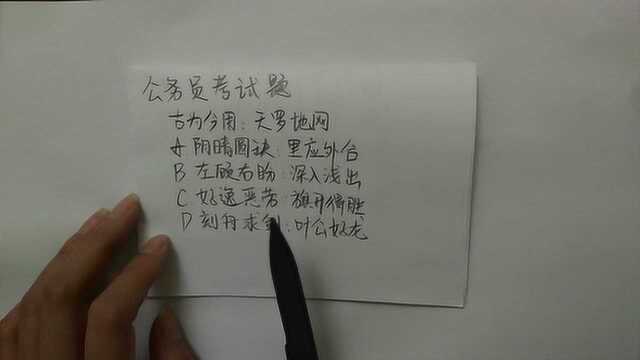 公务员考试题
古为今用：天罗地网
A 阴晴圆缺：里应外合
B 左顾右盼：深入浅出
C 好逸恶劳：旗开得胜
D 刻舟求剑：叶公好龙